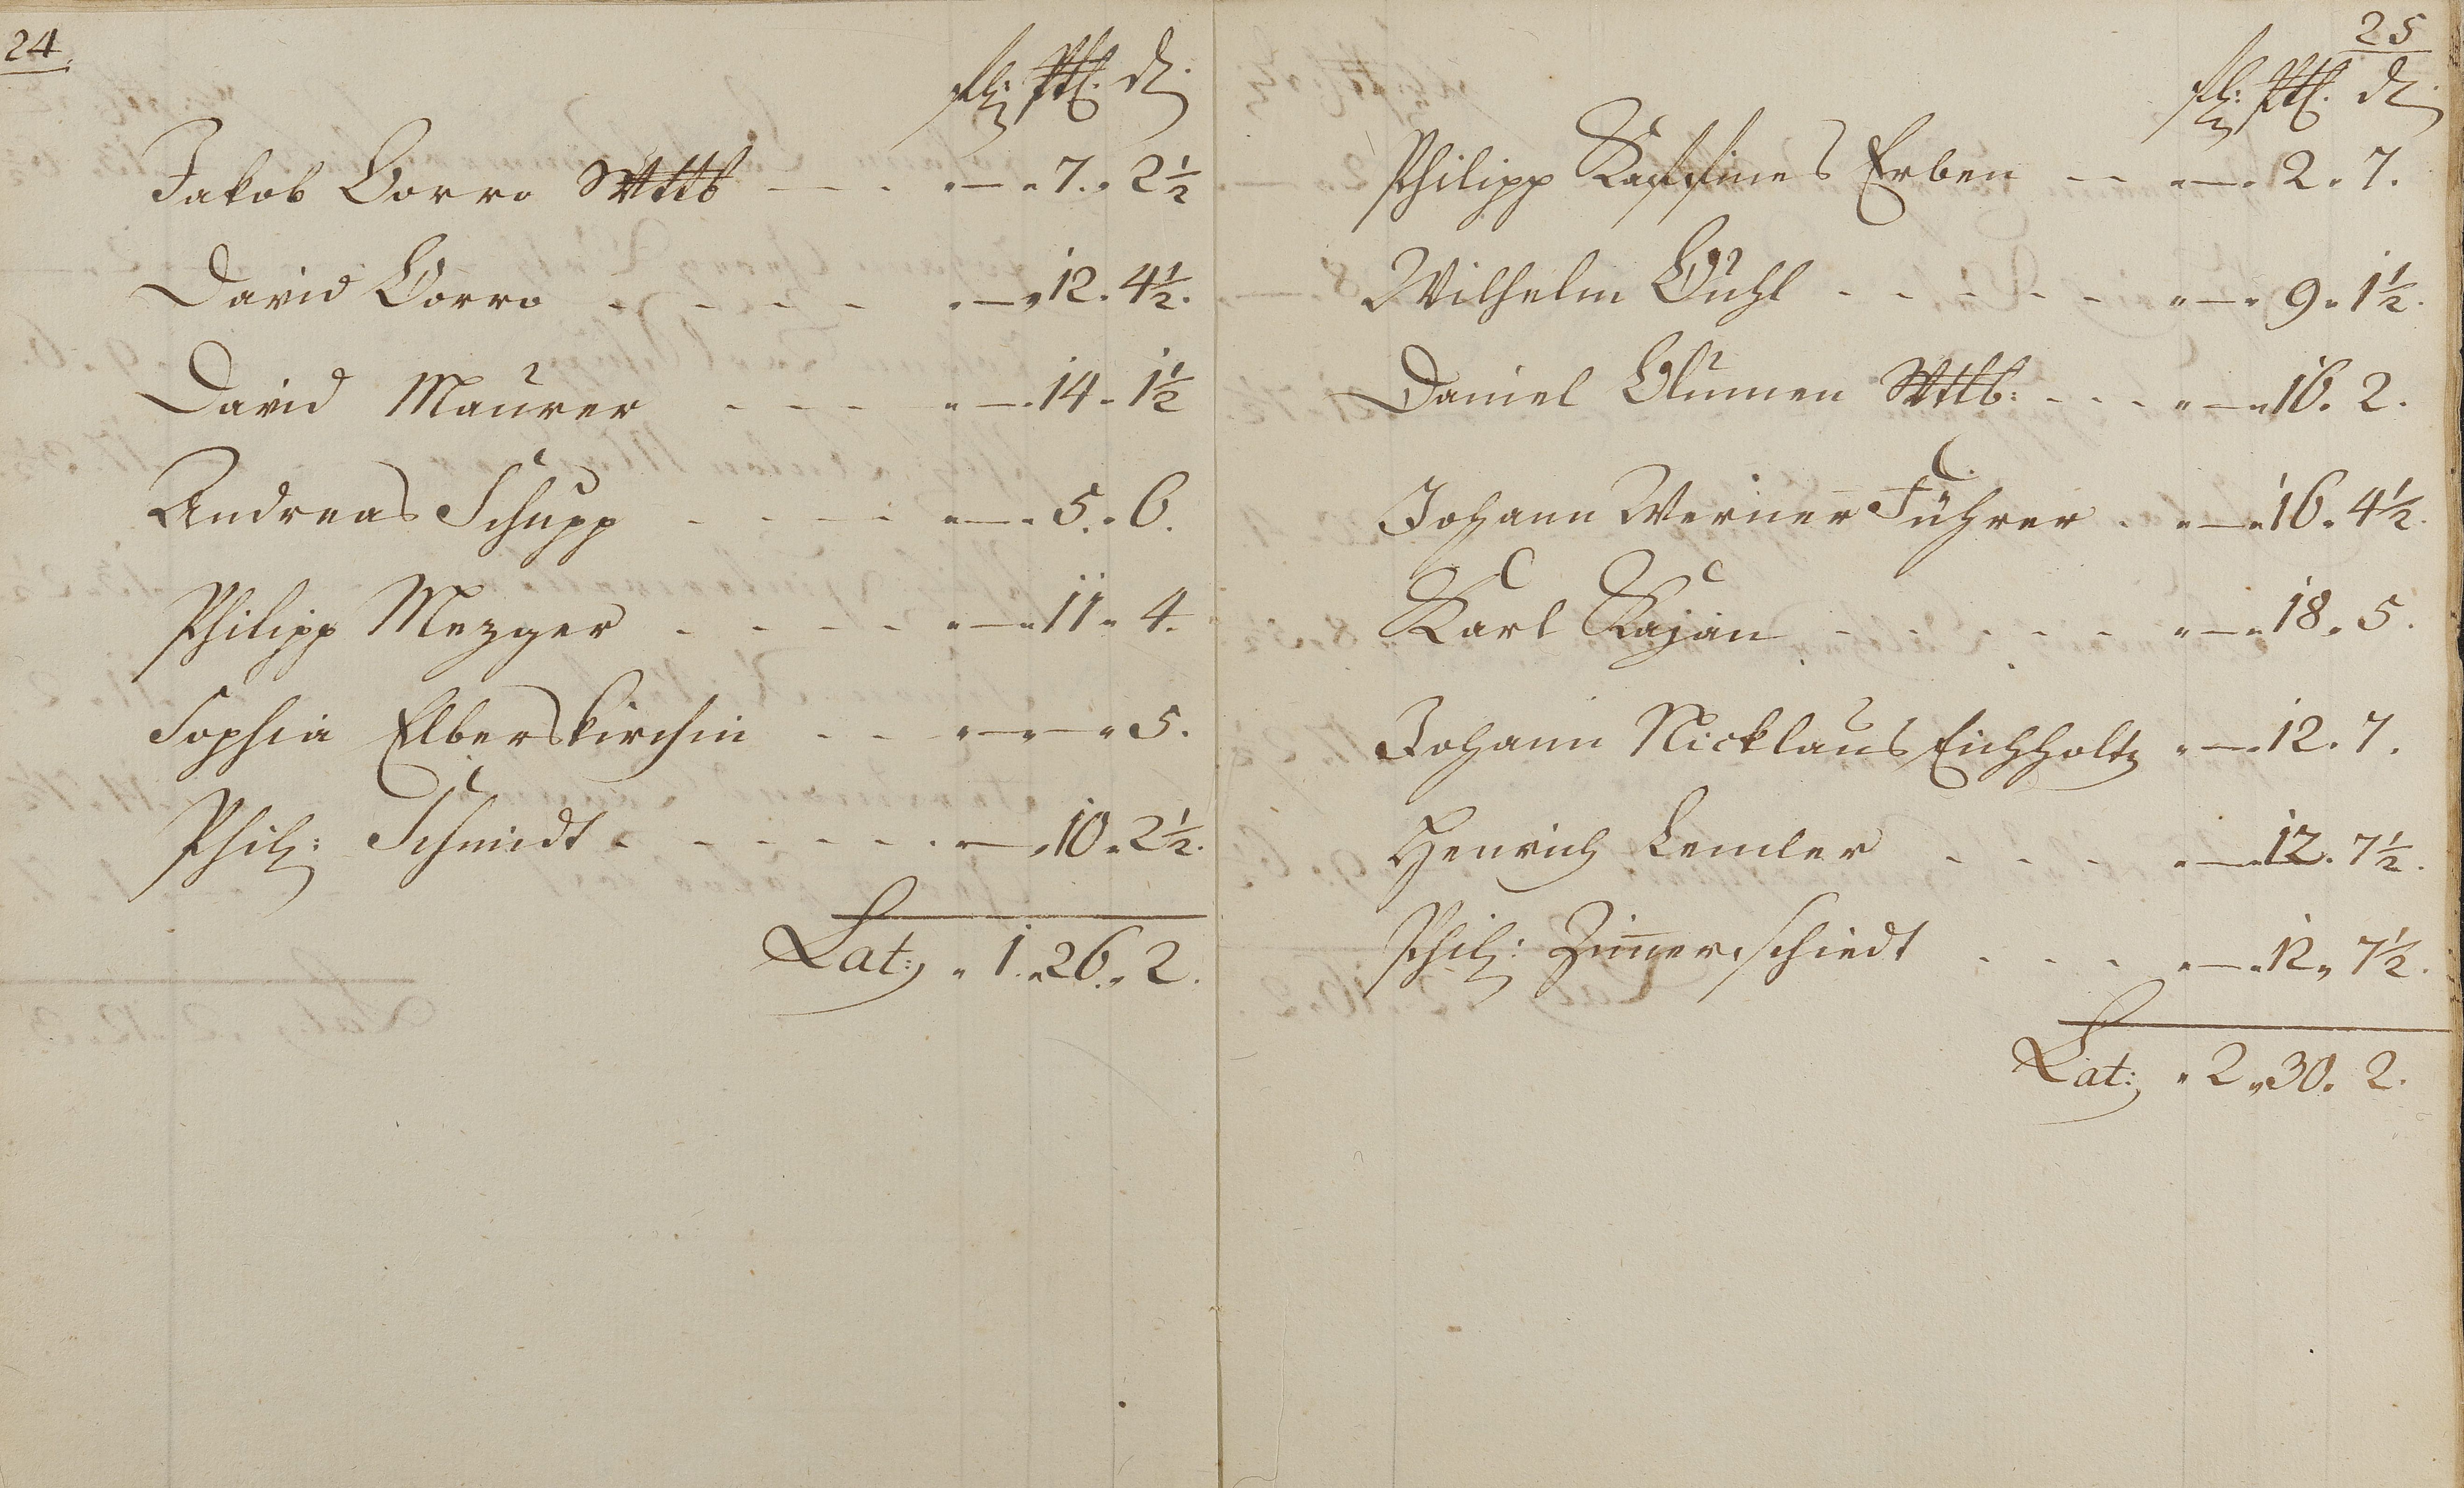 24.
fl: ß: d.
Jakob Borro Wttb - - . „—„7.„2½
David Borro . - - - „—„12.4½.
David Maurer - - - „—.14-1½
Andreas Schupp - - - - „—.5.„6.
Philipp Mezger . - - - „—„11„4.
Sophia Elberskirchin - - „—„—„5.
Phil: Schmidt - - - - - . „—„10„2½.
Lat: „1.„26.„2.
25
fl: ß: d.
Philipp Erben - - „—.2.7.
Wilhelm Buhl - - - - - „—„9.1½.
Daniel Blumen Wttb: - - - „—„16.2.
Johann Werner Führer . „—„16.4½.
Karl Kajan - - - - - „—„18.5.
Johann Nicklaus Eichholtz „—.12.7.
Henrich Lemler - - - „—.12.7½.
Phil: Zim̄erschiedt - - - „—.12„7½.
Lat: „2„30.2.